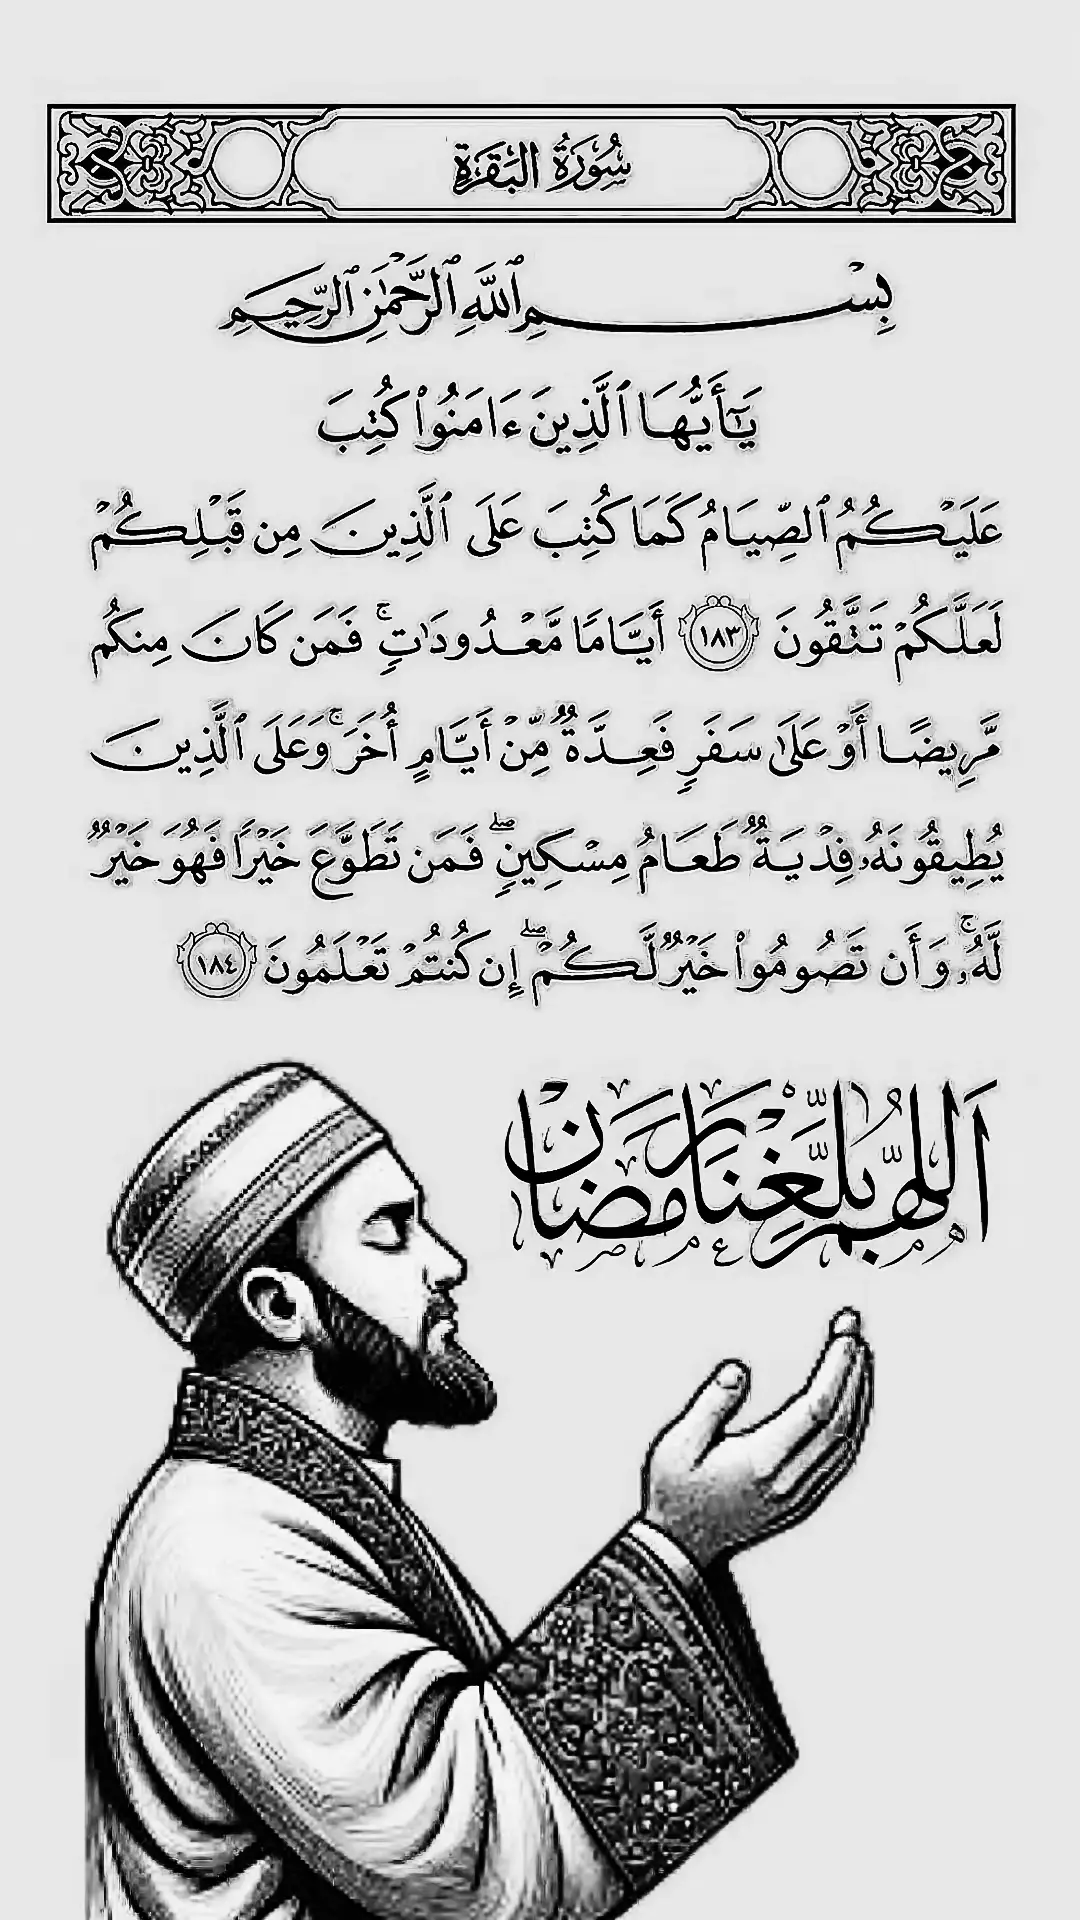 سُورَةُ البَقَرَةِ
بِسْمِ ٱللَّهِ ٱلرَّحْمَٰنِ ٱلرَّحِيمِ
يَٰٓأَيُّهَا ٱلَّذِينَ ءَامَنُوا۟ كُتِبَ
عَلَيْكُمُ ٱلصِّيَامُ كَمَا كُتِبَ عَلَى ٱلَّذِينَ مِن قَبْلِكُمْ
لَعَلَّكُمْ تَتَّقُونَ ١٨٣ أَيَّامًا مَّعْدُودَٰتٍ ۚ فَمَن كَانَ مِنكُم
مَّرِيضًا أَوْ عَلَىٰ سَفَرٍ فَعِدَّةٌ مِّنْ أَيَّامٍ أُخَرَ ۚ وَعَلَى ٱلَّذِينَ
يُطِيقُونَهُۥ فِدْيَةٌ طَعَامُ مِسْكِينٍ ۖ فَمَن تَطَوَّعَ خَيْرًا فَهُوَ خَيْرٌ
لَّهُۥ ۚ وَأَن تَصُومُوا۟ خَيْرٌ لَّكُمْ ۖ إِن كُنتُمْ تَعْلَمُونَ ١٨٤
اَللهُمَّ بَلِّغْنَا رَمَضَان